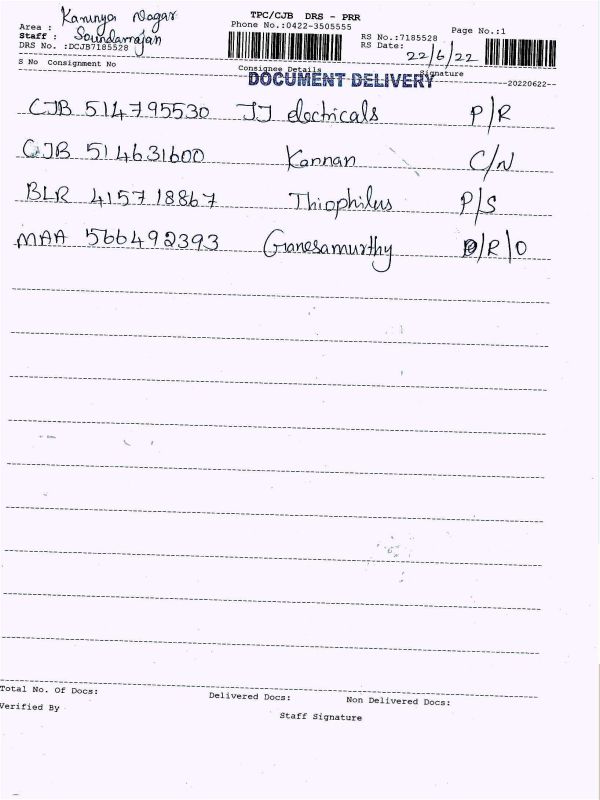 TPC/CJB DRS - PRR
Area : Karunya Nagar
Phone No.:0422-3505555
Page No.:1
Staff : Soundarrajan
RS No.:7185528
DRS No. :DCJB7185528
RS Date: 22/6/22
S No Consignment No Consignee Details Signature
DOCUMENT DELIVERY
--20220622--
CJB 514795530 JJ electricals P/R
CJB 514631600 Kannan C/N
BLR 415718867 Thiophilus P/S
MAA 566492393 Ganesamurthy D/R/O
Total No. Of Docs: Delivered Docs: Non Delivered Docs:
Verified By Staff Signature